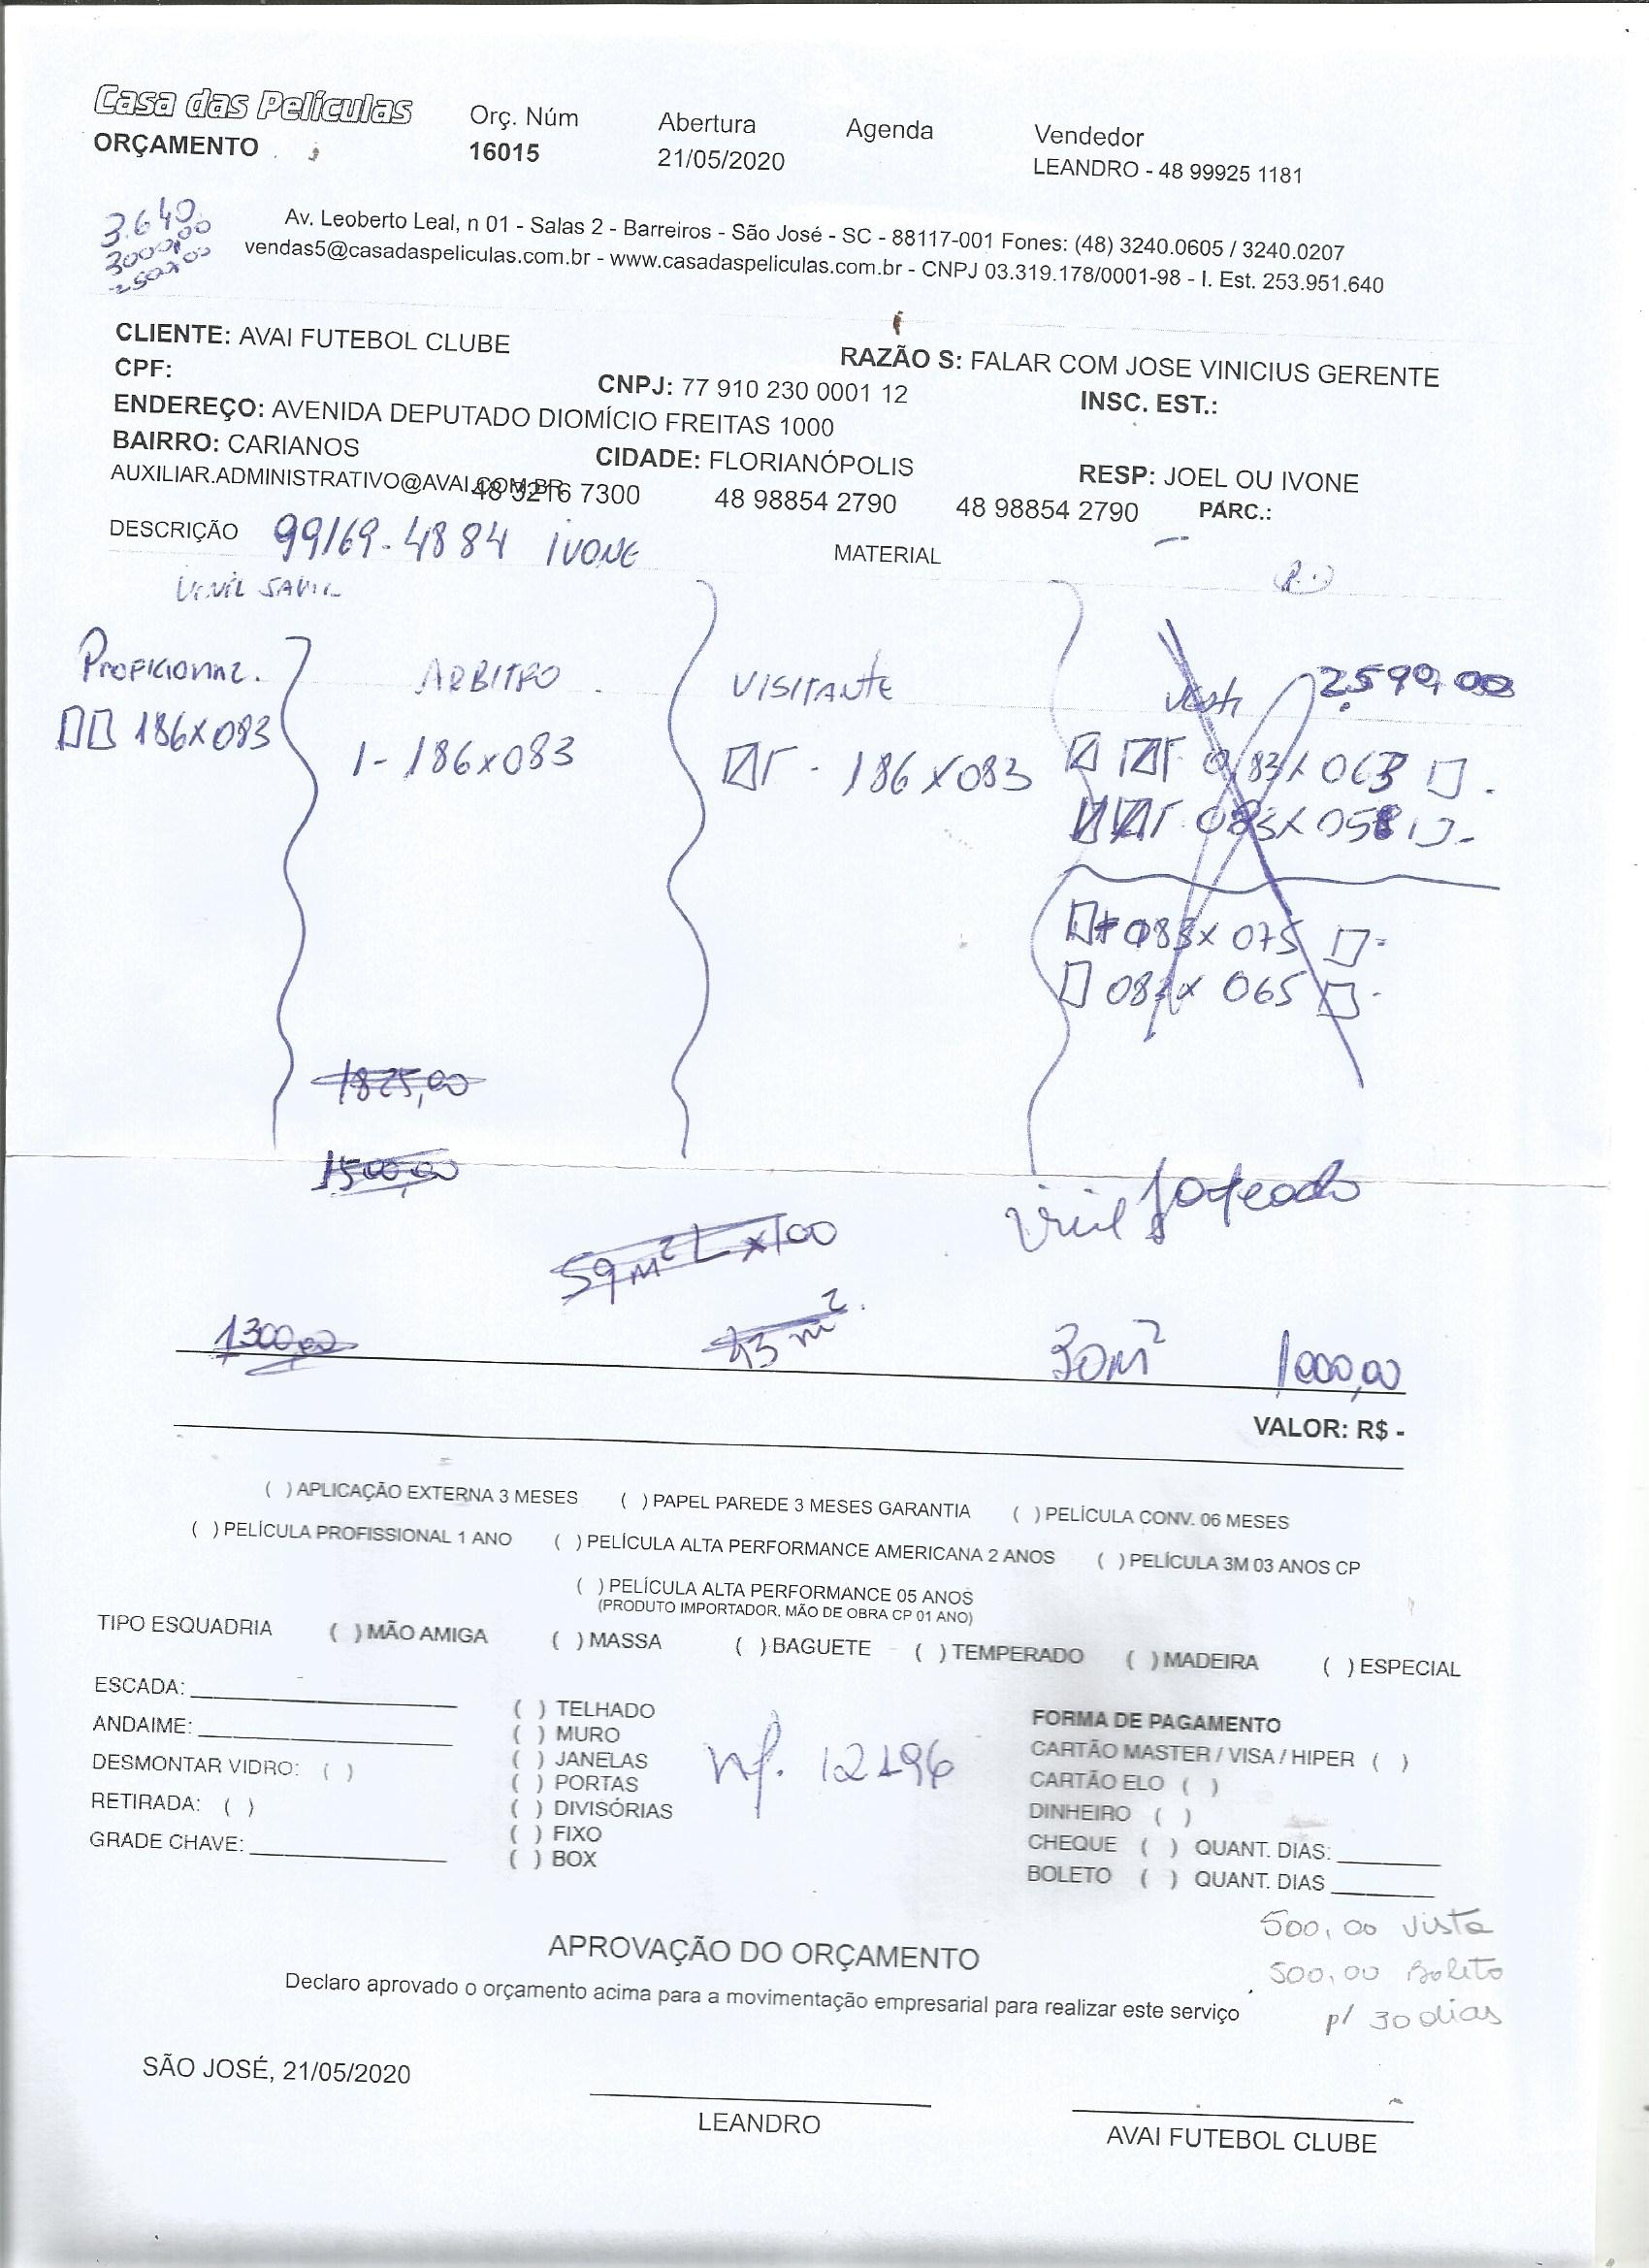 Casa das Películas
ORÇAMENTO
Orç. Núm
16015
Abertura
21/05/2020
Agenda
Vendedor
LEANDRO - 48 99925 1181
3.640,
3000,00
2500,00
Av. Leoberto Leal, n 01 - Salas 2 - Barreiros - São José - SC - 88117-001 Fones: (48) 3240.0605 / 3240.0207
vendas5@casadaspeliculas.com.br - www.casadaspeliculas.com.br - CNPJ 03.319.178/0001-98 - I. Est. 253.951.640
CLIENTE: AVAI FUTEBOL CLUBE
RAZÃO S: FALAR COM JOSE VINICIUS GERENTE
CPF:
CNPJ: 77 910 230 0001 12
INSC. EST.:
ENDEREÇO: AVENIDA DEPUTADO DIOMÍCIO FREITAS 1000
BAIRRO: CARIANOS
CIDADE: FLORIANÓPOLIS
RESP: JOEL OU IVONE
AUXILIAR.ADMINISTRATIVO@AVAI.COM.BR
48 3216 7300
48 98854 2790
48 98854 2790
PARC.:
DESCRIÇÃO
99169-4884 IVONE
MATERIAL
VINIL
PROFICIONAL.
186X083
ARBITRO
1- 186x083
VISITANTE
- 186X083
2590,00
0,83X063
083X058
083X075
X 065
1825,00
1500,00
59m² L x100
Vinil Jateado
1300,00
43 m².
30M²
1000,00
VALOR: R$ -
( ) APLICAÇÃO EXTERNA 3 MESES ( ) PAPEL PAREDE 3 MESES GARANTIA ( ) PELÍCULA CONV. 06 MESES
( ) PELÍCULA PROFISSIONAL 1 ANO ( ) PELÍCULA ALTA PERFORMANCE AMERICANA 2 ANOS ( ) PELÍCULA 3M 03 ANOS CP
( ) PELÍCULA ALTA PERFORMANCE 05 ANOS
(PRODUTO IMPORTADOR, MÃO DE OBRA CP 01 ANO)
TIPO ESQUADRIA ( ) MÃO AMIGA ( ) MASSA ( ) BAGUETE ( ) TEMPERADO ( ) MADEIRA ( ) ESPECIAL
ESCADA:
ANDAIME:
DESMONTAR VIDRO: ( )
RETIRADA: ( )
GRADE CHAVE:
( ) TELHADO
( ) MURO
( ) JANELAS
( ) PORTAS
( ) DIVISÓRIAS
( ) FIXO
( ) BOX
nf. 12196
FORMA DE PAGAMENTO
CARTÃO MASTER / VISA / HIPER ( )
CARTÃO ELO ( )
DINHEIRO ( )
CHEQUE ( ) QUANT. DIAS:
BOLETO ( ) QUANT. DIAS
500,00 vista
500,00 Boleto
p/ 30 dias
APROVAÇÃO DO ORÇAMENTO
Declaro aprovado o orçamento acima para a movimentação empresarial para realizar este serviço
SÃO JOSÉ, 21/05/2020
LEANDRO
AVAI FUTEBOL CLUBE